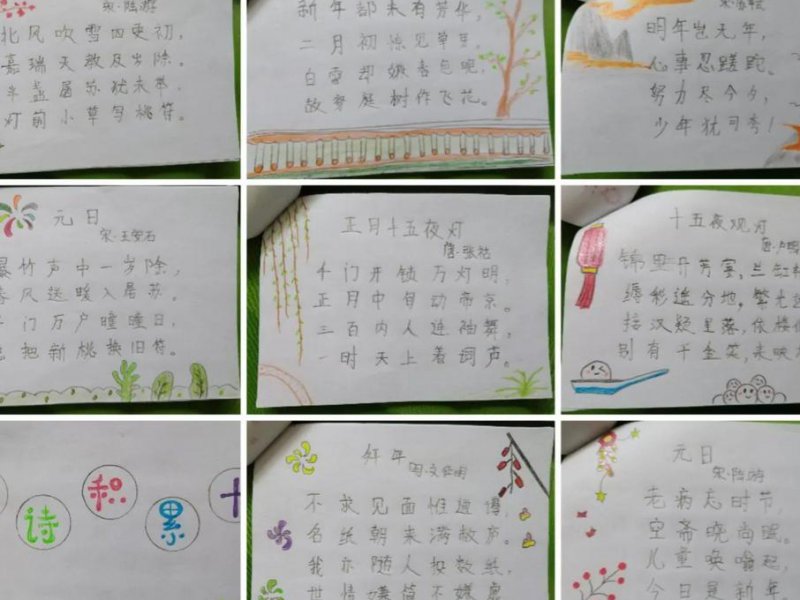 宋·陆游
北风吹雪四更初，
嘉瑞天教及岁除。
半盏屠苏犹未举，
灯前小草写桃符。
新年都未有芳华，
二月初惊见草芽。
白雪却嫌春色晚，
故穿庭树作飞花。
宋·苏轼
明年岂无年，
心事恐蹉跎。
努力尽今夕，
少年犹可夸！
元日
宋·王安石
爆竹声中一岁除，
春风送暖入屠苏。
千门万户曈曈日，
把新桃换旧符。
正月十五夜灯
唐·张祜
千门开锁万灯明，
正月中旬动帝京。
三百内人连袖舞，
一时天上着词声。
十五夜观灯
唐·卢照
锦里开芳宴，兰缸
缛彩遥分地，繁光远
接汉疑星落，依楼似
别有千金笑，来映九
诗积累十
拜年
明·文徵明
不求见面惟通谒，
名纸朝来满敝庐。
我亦随人投数纸，
世情嫌简不嫌虚
元日
宋·陆游
老病忘时节，
空斋晓尚眠。
儿童唤嘱起，
今日是新年。